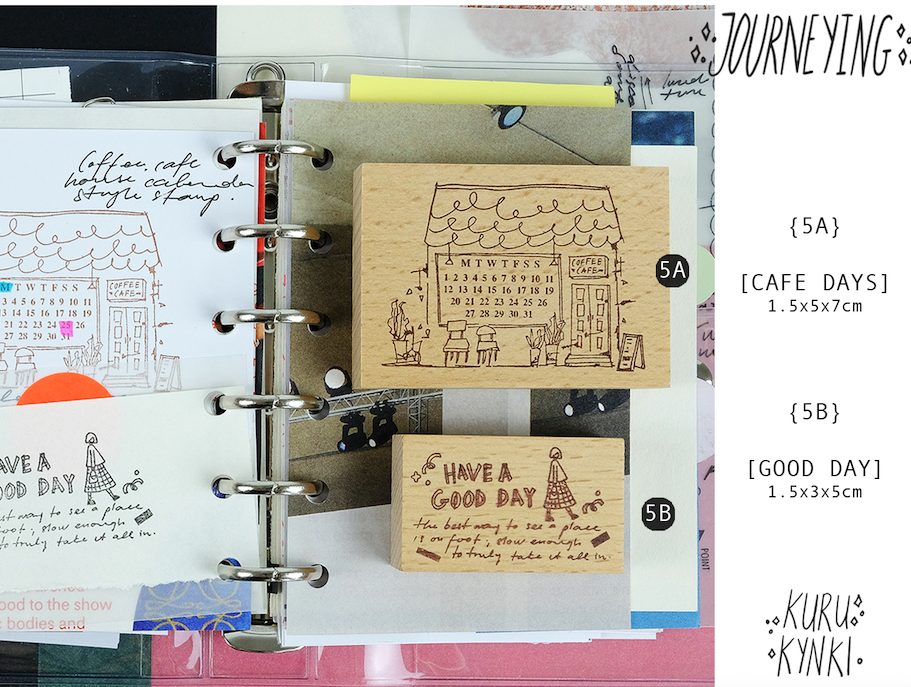 JOURNEYING
Coffee. cafe
house calendar
style stamp.
M T W T F S S
3 4 5 6 7 8 9 10 11
14 15 16 17 18 19
21 22 23 24 25 26
28 29 30 31
COFFEE
CAFE
HAVE A
GOOD DAY
best way to see a place
foot, slow enough
to truly take it all in.
ood to the show
c bodies and
M T W T F S S
1 2 3 4 5 6 7 8 9 10 11
12 13 14 15 16 17 18 19
20 21 22 23 24 25 26
27 28 29 30 31
COFFEE
CAFE
5A
HAVE A
GOOD DAY
the best way to see a place
is on foot, slow enough
to truly take it all in.
5B
POINT
{5A}
[CAFE DAYS]
1.5x5x7cm
{5B}
[GOOD DAY]
1.5x3x5cm
KURU
KYNKI